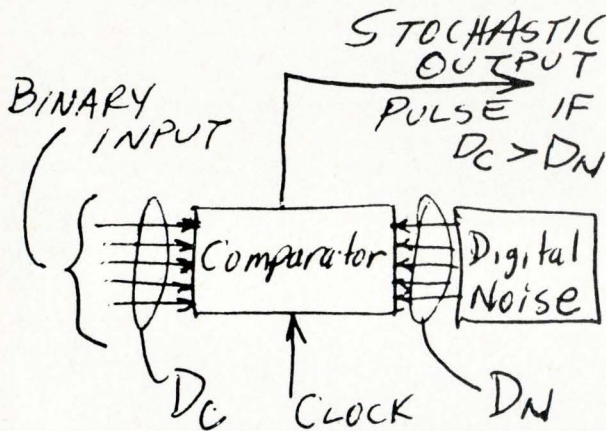 STOCHASTIC
OUTPUT
PULSE IF
DC > DN
BINARY
INPUT
Comparator
Digital
Noise
DC
CLOCK
DN